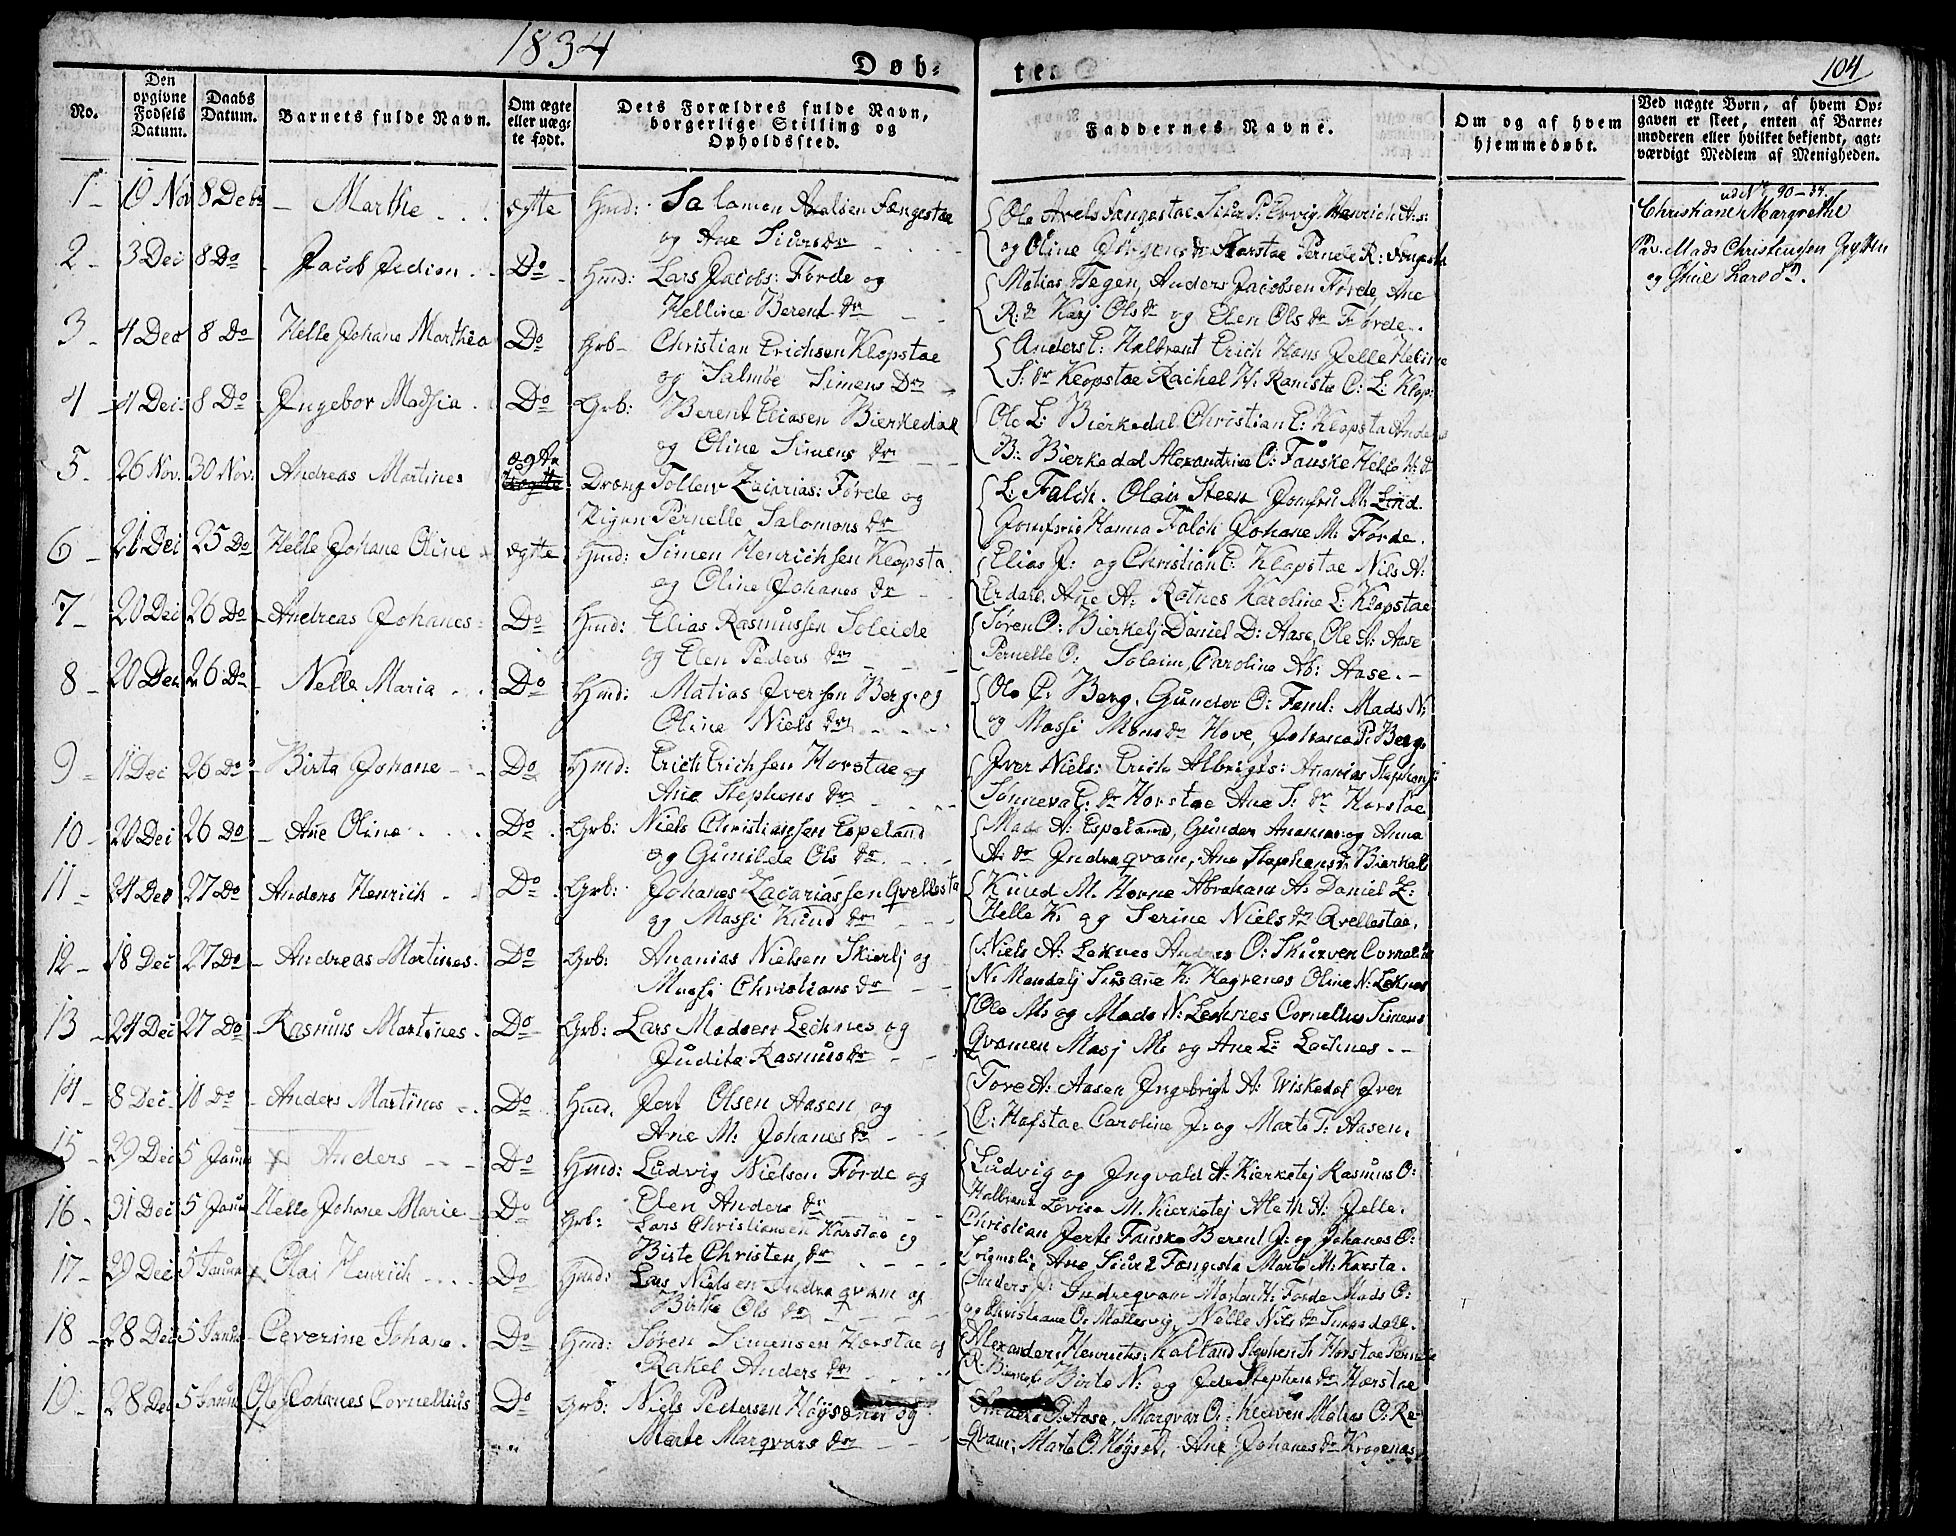 1834
Døb-
te.
104
No.
Den opgivne Fødsels Datum.
Daabs Datum.
Barnets fulde Navn.
Om ægte eller uægte født.
Dets Forældres fulde Navn, borgerlige Stilling og Opholdssted.
Faddernes Navne.
Om og af hvem hjemmedøbt.
Ved uægte Børn, af hvem Opgaven er skeet, enten af Barnemoderen eller hvilket bekjendt, agtværdigt Medlem af Menigheden.
ud No 90-34.
Christiane Margrethe
Mads Christensen
og
1 - 10 Nov 8 Decbr - Marthe ægte Hmd: Salomon Axelsen Fængestae
og Ane Siurs dr
Ole Axels Fængestae Siur P: Ervig Henrich A:s:
og Oline Jørgens dr Karstae Pernele R:
2 - 3 Dec 8 Do - Jacob Do - Hmd: Lars Jacobs: Førde og
Helline Berent dr
Matias Tegen, Anders Jacobsen Førde, Ane
R: dr Karj Ols dr og Elen Ols dr Førde.
3 - 4 Dec 8 Do - Helle Johane Marthea Do Grb - Christian Erichsen Klopstae
og Salmöe Simens Dr
Anders E: Halbrent Erich Hans Jelle Heline
S: dr Klopstae Rachel H: Ramsta O: L: Klop:
4 - 4 Dec 8 Do - Ingebor Madsia Do Grb: Berent Eliasen Bierkedal
og Oline Simens dr
Ole L: Bierkedal Christian E: Klopsta Anders
B: Bierkedal Alexandrine O: Fauske Helle N: d
5 - 26 Nov. 30 Nov: Andreas Martines ægte Dræng Tollew Zacarias: Førde og
Pigen Pernelle Salomons dr
L: Falch. Olai Steen Jomfru M: Lind.
Jomfrue Hanna Falch Johane M: Førde.
6 - 21 Dec 25 Do Helle Johane Oline ægte Hmd: Simen Henrichsen Klopsta
og Oline Johanes dr
Elias J: og Christian E: Klopstae Nils A:
Erdal, Ane A: Rotnes Karoline L: Klopstae
7 - 20 Dec 26 Do - Andreas Johanes - Do Hmd: Elias Rasmussen Soleide
og Elen Peders dr
Søren O: Bierkelj Daniel D: Aase, Ole A: Aase
Pernelle O: Soleim, Caroline Ab: Aase. -
8 - 20 Dec 26 Do - Nelle Maria Do Hmd: Matias Iversen Berg. og
Oline Niels dr
Ole P: Berg. Gunder O: Feml: Mads N:
og Massi Mons dr Hove, Johana P: Berg.
9 - 11 Dec 26 Do - Birta Johane - Do Hmd: Erich Erichsen Horstae og
Ane Stephens dr
Iver Niels: Erich Albrigts: Ananias Stephens:
Sønneva E: dr Horstae Ane S: dr Horstae
10 - 20 Dec 26 Do - Ane Oline Do Grb: Niels Christiansen Espeland
og Gunilde Ols dr
Mads A: Espeland, Gunder Ananias og Anna
A: dr Indreqvam, Ane Stephens dr Bierkel:
11 - 24 Dec 27 Do Anders Henrich Do Grb: Johanes Zacariassen Qvellesta
og Massi Knud dr
Knud M. Horne Abraham A: Daniel Z:
Helle K. og Serine Niels dr Qvellestae.
12 - 18 Dec 27 Do - Andreas Martines. Do Grb: Ananias Nielsen Skierlj og
Massi Christians dr
Niels A: Leknes Anders O: Skurven
N: Mondelj Susane K: Hegrenes Oline N: Leknes
13 - 24 Dec 27 Do - Rasmus Martines. Do Grb: Lars Madsen Lechnes og
Judite Rasmus dr
Ole M: og Mads N: Lechnes Cornelius Simens
Qvamen Masj M: og Ane L: Lechnes. -
14 - 8 Dec 10 Do - Anders Martines Do Hmd. Jert Olsen Aasen og
Ane M: Johanes dr
Tore A: Aasen Ingebrigt A: Viskedal Iver
C: Hafstae Caroline J: og Marte T: Aasen.
15 - 29 Dec 5 Janu Anders Do Hmd: Ludvig Nielsen Førde og
Elen Anders dr
Ludvig og Ingvald A: Kierketej Rasmus O:
Halbrent Lovise M. Kierketej Aleth A: Jelle.
16 - 31 Dec 5 Janu Helle Johane Marie Do Grb: Lars Christiansen Karstae og
Birte Christen dr
Christian Jerts Fauske Berent J: og Johanes O:
Ane Siur d Fængesta Marte M: Karsta.
17 - 29 Dec 5 Janu Olai Henrich Do Hmd: Lars Nielsen Indreqvam og
Birthe Ols dr
Anders J: Indreqvam Morten H: Førde Mads O:
og Christiane O: Mallesvig, Nelle Nils dr
18 - 28 Dec 5 Janu - Ceverine Johane Do Hmd: Søren Simensen Horstae og
Rakel Anders dr
Alexander Henrichs: Kalland Stephen S: Horstae Pernele
R: Birte N: og Stephens dr Horstae
19 - 28 Dec 5 Janu Ole Johanes Cornellius Do Grb: Niels Pedersen og
Marte Marqvars dr
Anders P: Aase, Marqvar O: Matias O:
qvam, Marte O: Høyset, Ane Johanes dr Krogenæs